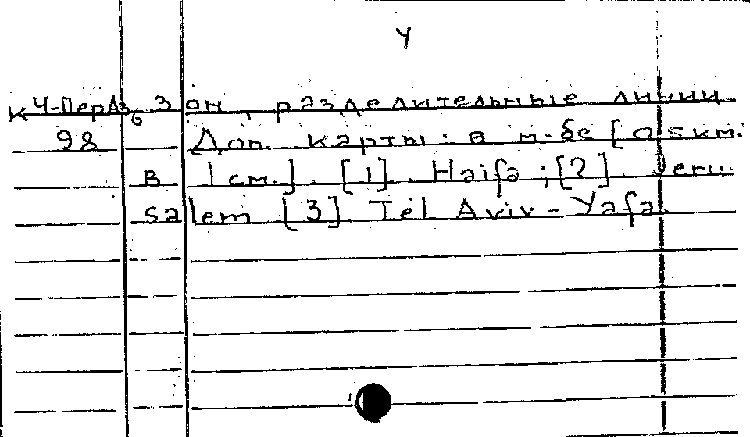 У
К 4-ПерАз 6 зон, разделительные линии
98 Доп. карты: в м-бе [0,5 км.
в 1 см.]. [1]. Haifa; [2]. Jeru-
salem [3] Tel Aviv - Yafa.